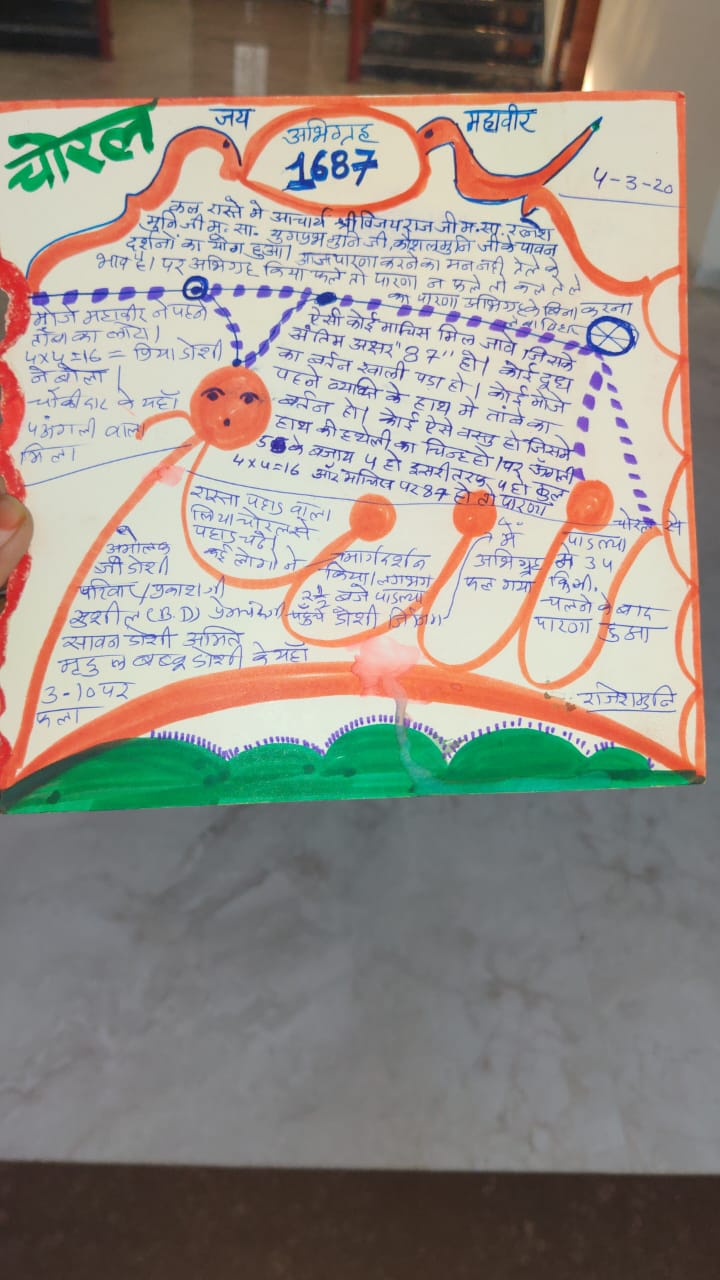 चोरल
जय
महावीर
अभिग्रह
1687
4-3-20
कल रास्ते मे आचार्य श्री विजयराज जी म.सा. रत्नेश
मुनि जी म. सा. युगप्रभ मुनि जी, कौशल मुनि जी के पावन
दर्शनों का योग हुआ। आज पारणा करने का मन नही तेले के
भाव है। पर अभिग्रह किया फले तो पारणा न फले तो कल तेले
का पारणा अभिग्रह के बिना करना
विहार
ऐसी कोई माचिस मिल जावे जिसके
अंतिम अक्षर "87" हो। कोई दूध
का बर्तन खाली पडा हो। कोई मोजे
पहने व्यक्ति के हाथ मे तांबे का
बर्तन हो। कोई ऐसी वस्तु हो जिसमे
हाथ की हथेली का चिन्ह हो। पर ऊँगली
5 के बजाय 4 हो इसी तरफ 4 हो कुल
4x4=16 और माचिस पर 87 हो तो पारणा
मोजे महावीर ने पहने
ताँबा का लोटा।
4x4=16 = प्रिया डोशी
ने बोला।
चौकीदार के यहाँ
4 अंगली वाला
मिला
रास्ता पहाड वाला
लिया चोरल से
पहाड चढे।
कई लोगो ने
मार्गदर्शन
किया। लगभग
2½ बजे पाडल्या
पहुँचे डोशी जिनिंग
में
अभिग्रह
फल गया
चोरल से
पाडल्या
मे 34
किमी.
चलने के बाद
पारणा हुआ
अमोलक
जी डोशी
परिवार प्रकाश जी
सुशील (B.D)
सावन डोशी अमित
मृदुल बब्लू डोशी के यहाँ
3-10 पर
फला
राजेशमुनि